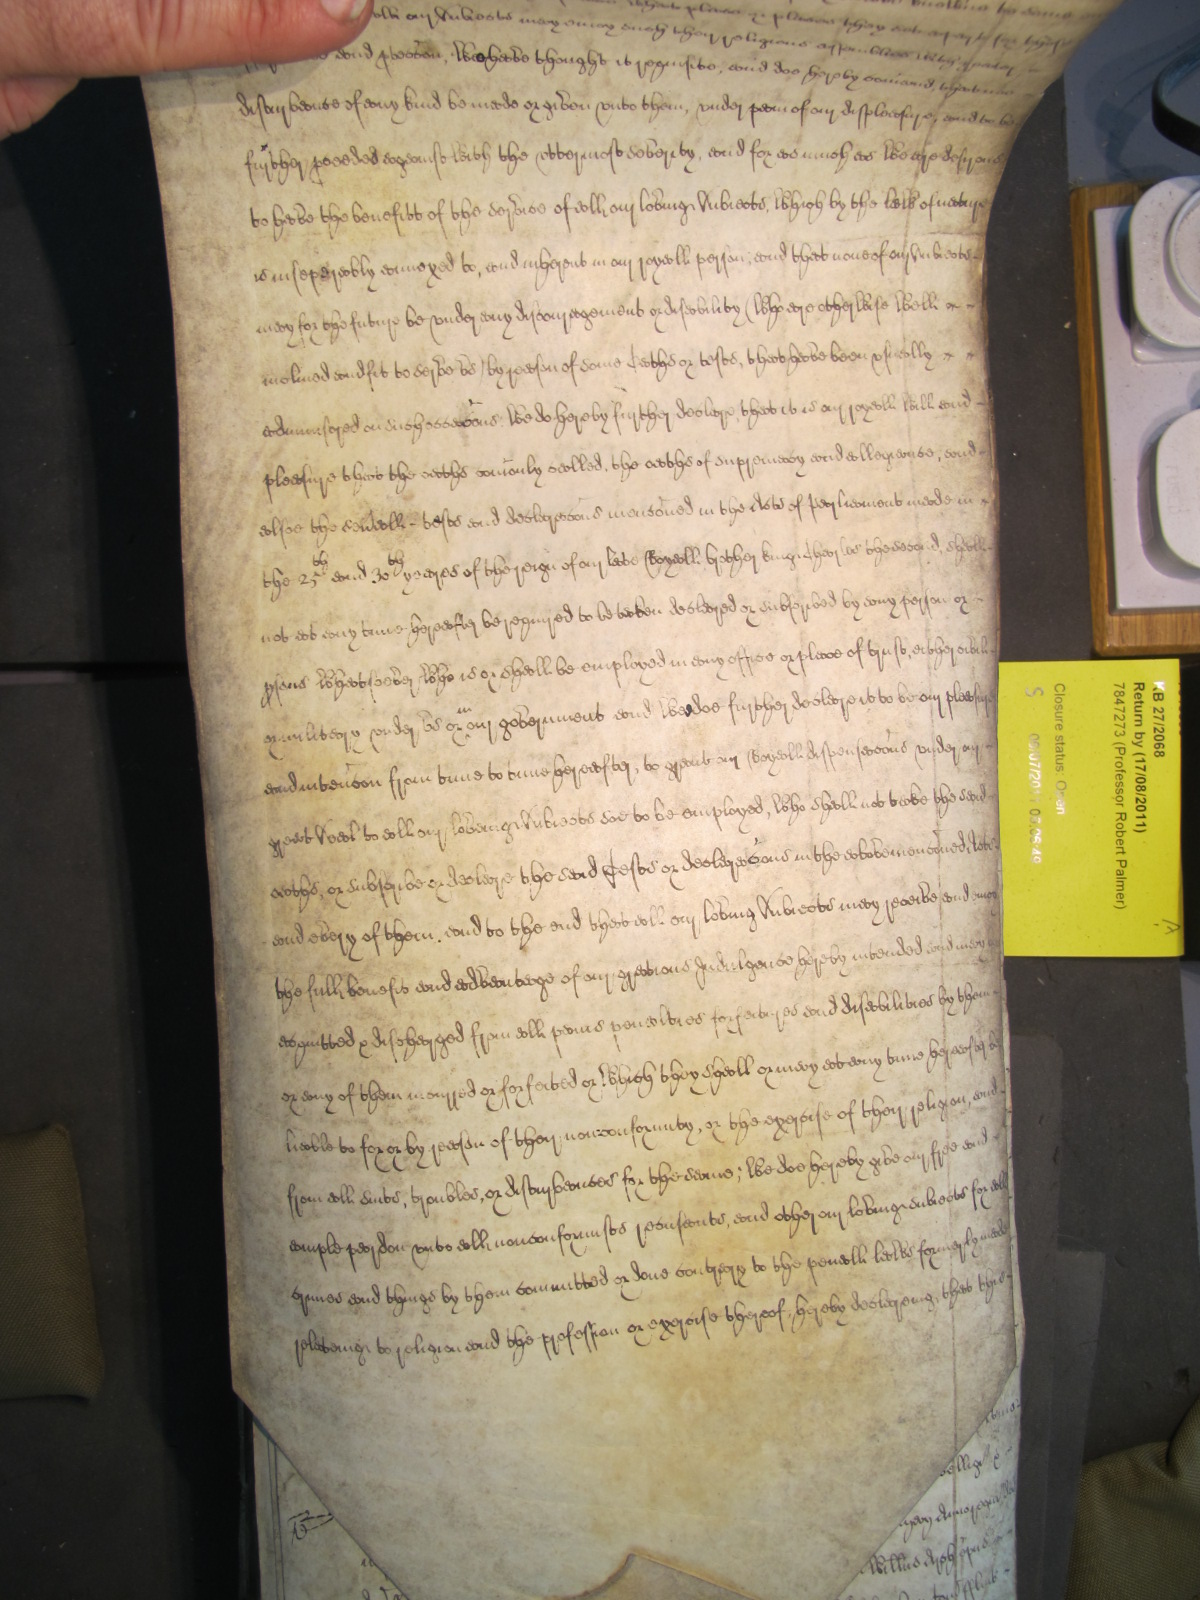 place or places they set apart for theyr
all our Subiects may enioy such theyr religious assemblies with greater
and proteccon, Wee have thought it requisite, and doe hereby comand, that noe
disturbance of any kind be made or given unto them, under pain of our displeasure, and to be
further pceeded against with the uttermost severity, and for as much as Wee are desirous
to have the benefitt of the service of all our loving Subiects, Which by the law of nature
is inseperably annexed to, and inherent in our royall person, and that none of our Subiects
may for the future be under any discouragement or disability (Who are otherwise Well
inclined and fit to serve us) by reason of some Oaths or tests, that have been usually
administred on such occacons. Wee do hereby further declare, that it is our royall Will and
pleasure that the oaths comonly called, the oaths of supremacy and allegiance, and
alsoe the severall tests and declaracons menconed in the Acts of Parliament made in
the 25th and 30th yeares of the reign of our late Royall brother king Charles the second, shall
not at any time hereafter be required to be taken declared or subscribed by any person or
psons Whatsoever Who is or shall be employed in any office or place of trust, either civill
or military under us or in our government and Wee doe further declare it to be our pleasure
and intencon from time to time hereafter, to grant our Royall dispensacons under our
great Seal to all our loveing Subiects soe to be employed, Who shall not take the said
oaths, or subscribe or declare the said Tests or declaracons in the abovemenconed Acts
and every of them. and to the end that all our loving Subiects may receive and enioy
the full benefit and advantage of our gratious Indulgence hereby intended and may
acquitted & discharged from all pains penalties forfeitures and disabilities by them
or any of them incurred or forfeited or Which they shall or may at any time hereafter be
liable to for or by reason of their nonconformity, or the exercise of their religion, and
from all suits, troubles, or disturbances for the same; Wee doe hereby give our free and
ample pardon unto all nonconformists recusants, and other our loving subiects for all
crimes and things by them committed or done contrary to the penall laws formerly made
relateing to religion and the profession or exercise thereof, hereby declareing, that this
KB 27/2068
Return by (17/08/2011)
7847273 (Professor Robert Palmer)
Closure status: Open
S